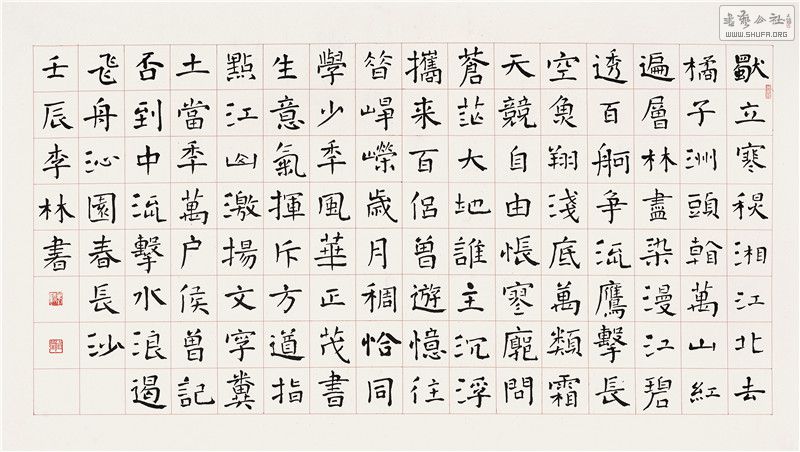 獨立寒秋湘江北去
橘子洲頭看萬山紅
遍層林盡染漫江碧
透百舸争流鷹擊長
空魚翔淺底萬類霜
天競自由悵寥廓問
蒼茫大地誰主沉浮
攜来百侣曾遊憶往
昔崢嶸歲月稠恰同
學少年風華正茂書
生意氣揮斥方遒指
點江山激揚文字糞
土當年萬户侯曾記
否到中流擊水浪遏
飛舟沁園春長沙
壬辰李林書
書藝公社
WWW.SHUFA.ORG